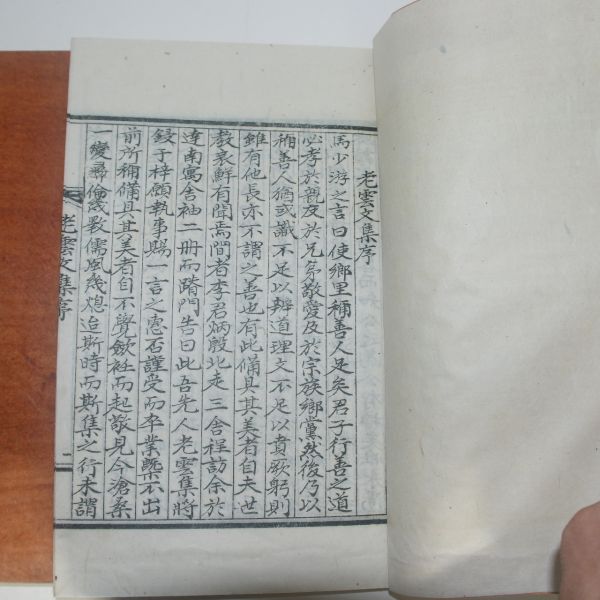 老雲文集序
馬少游之言曰使鄉里稱善人足矣君子行善之道
必孝於親友於兄弟敬愛及於宗族鄉黨然後乃以
稱善人猶或識不足以辨道理文不足以賁厥躬則
雖有他長亦不謂之善也有此備具其美者自夫世
教衰鮮有聞焉間者李君炳殷北走三舍程訪余於
達南寓舍袖二冊而踏門告曰此吾先人老雲集將
鋟于梓願執事賜一言之惠否謹受而卒業槩不出
前所稱備具其美者自不覺斂衽而起敬見今滄桑
一變尋倫斁儒風幾熄迨斯時而斯集之行未謂
老雲文集序
一